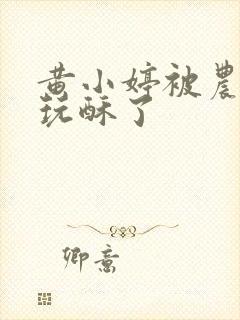 黄小婷被農
玩酥了
卿意